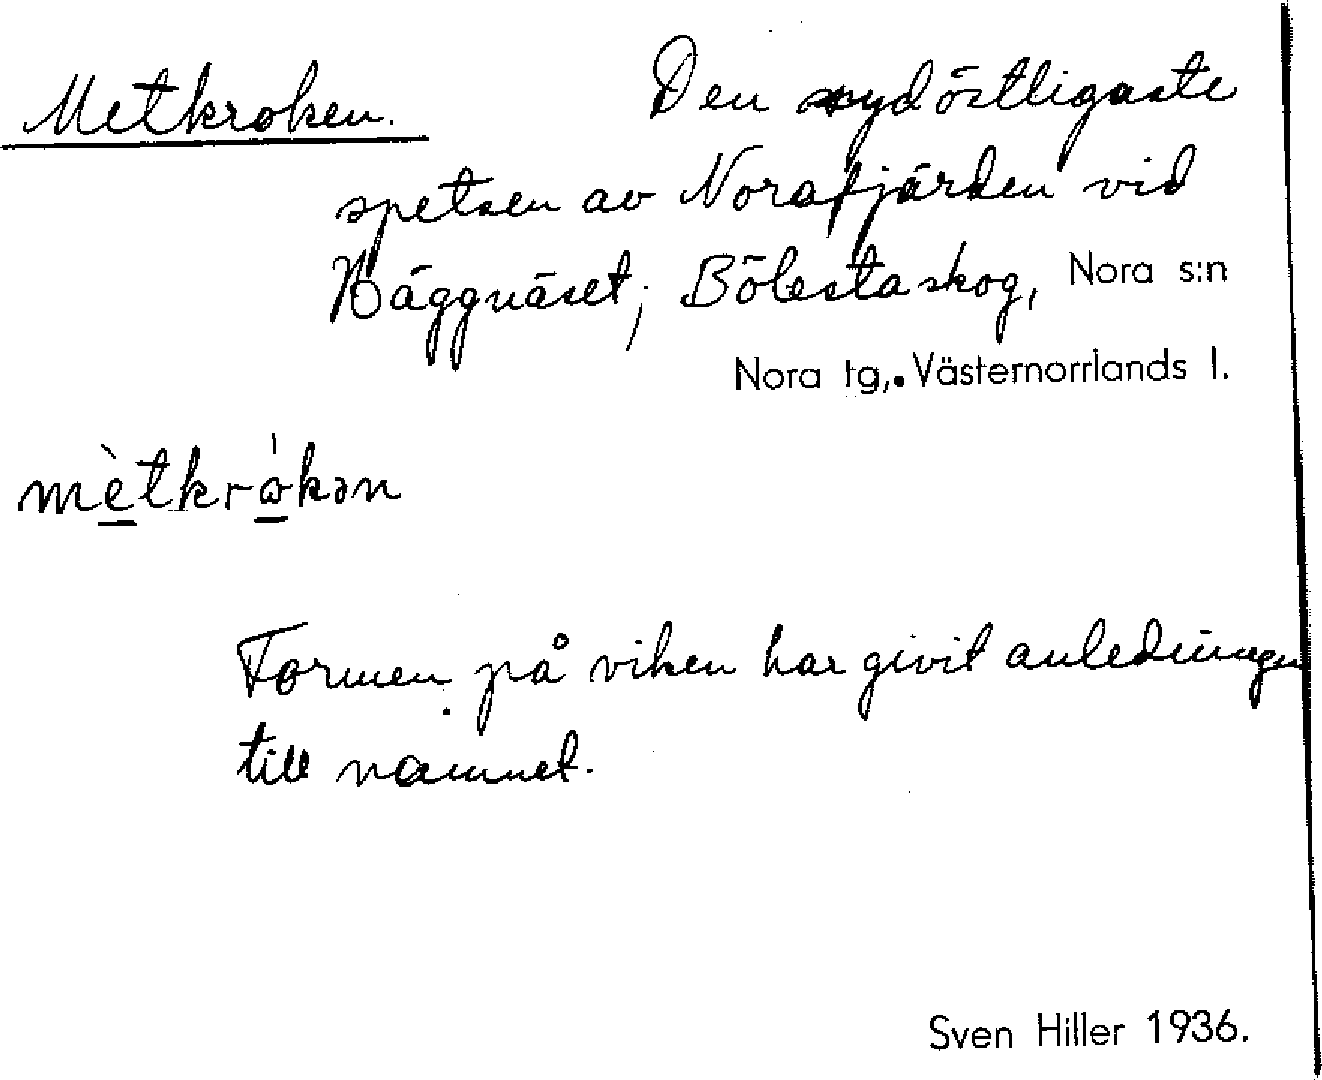 Metkroken. Den sydöstligaste
spetsen av Norafjärden vid
Häggnäset; Bölesta skog, Nora s:n
Nora tg,. Västernorrlands l.
mètkrò̩kən
Formen på viken har givit anledningen
till namnet.
Sven Hiller 1936.